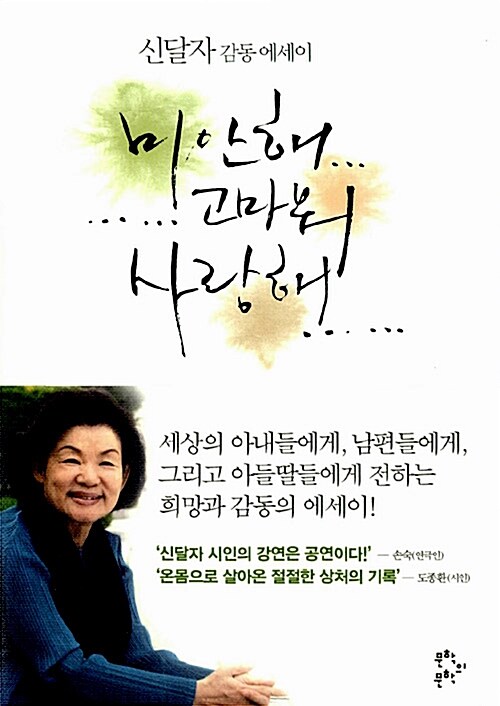 신달자 감동 에세이
미안해...
......고마워
사랑해......
세상의 아내들에게, 남편들에게,
그리고 아들딸들에게 전하는
희망과 감동의 에세이!
'신달자 시인의 강연은 공연이다!' — 손숙(연극인)
'온몸으로 살아온 절절한 상처의 기록' — 도종환(시인)
문학의
문학